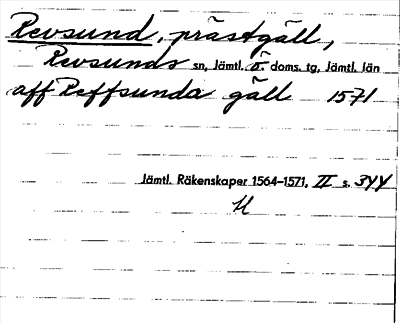 Revsund, prästgäll,
Revsunds sn, Jämtl. Ö. doms. tg, Jämtl. län
aff Reffsunda gäll 1571
Jämtl. Räkenskaper 1564–1571, II s. 344